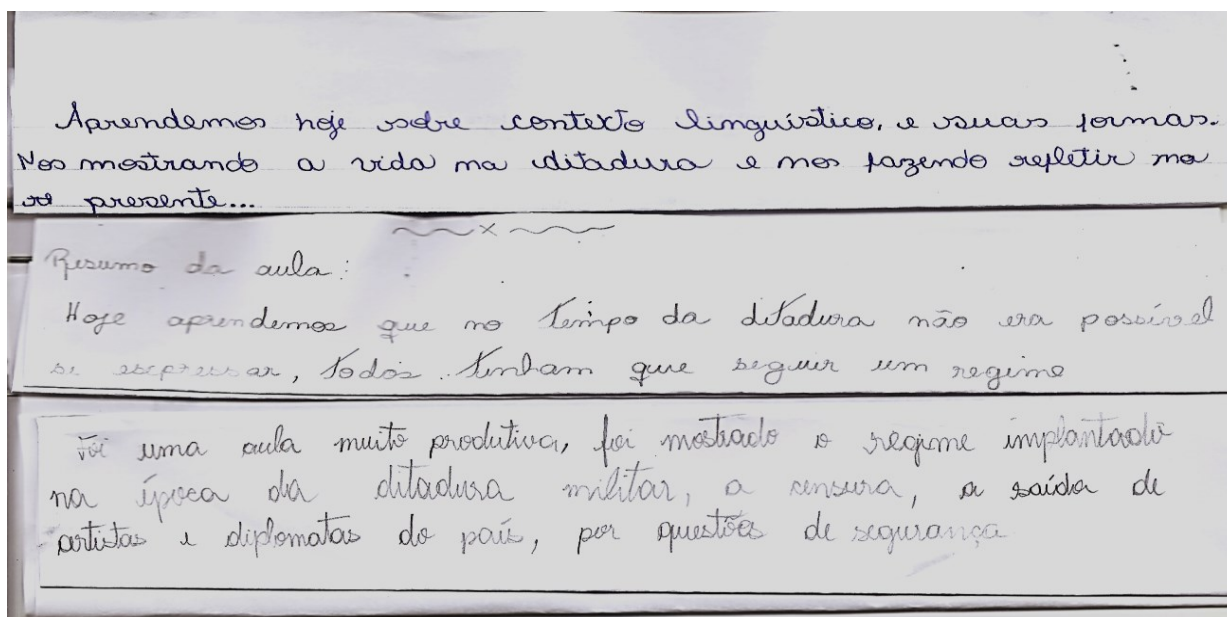 Aprendemos hoje sobre contexto linguístico, e suas formas.
Nos mostrando a vida na ditadura e nos fazendo refletir no
presente...
Resumo da aula:
Hoje aprendemos que no tempo da ditadura não era possível
se expressar, todos tinham que seguir um regime
Foi uma aula muito produtiva, foi mostrado o regime implantado
na época da ditadura militar, a censura, a saída de
artistas e diplomatas do país, por questões de segurança